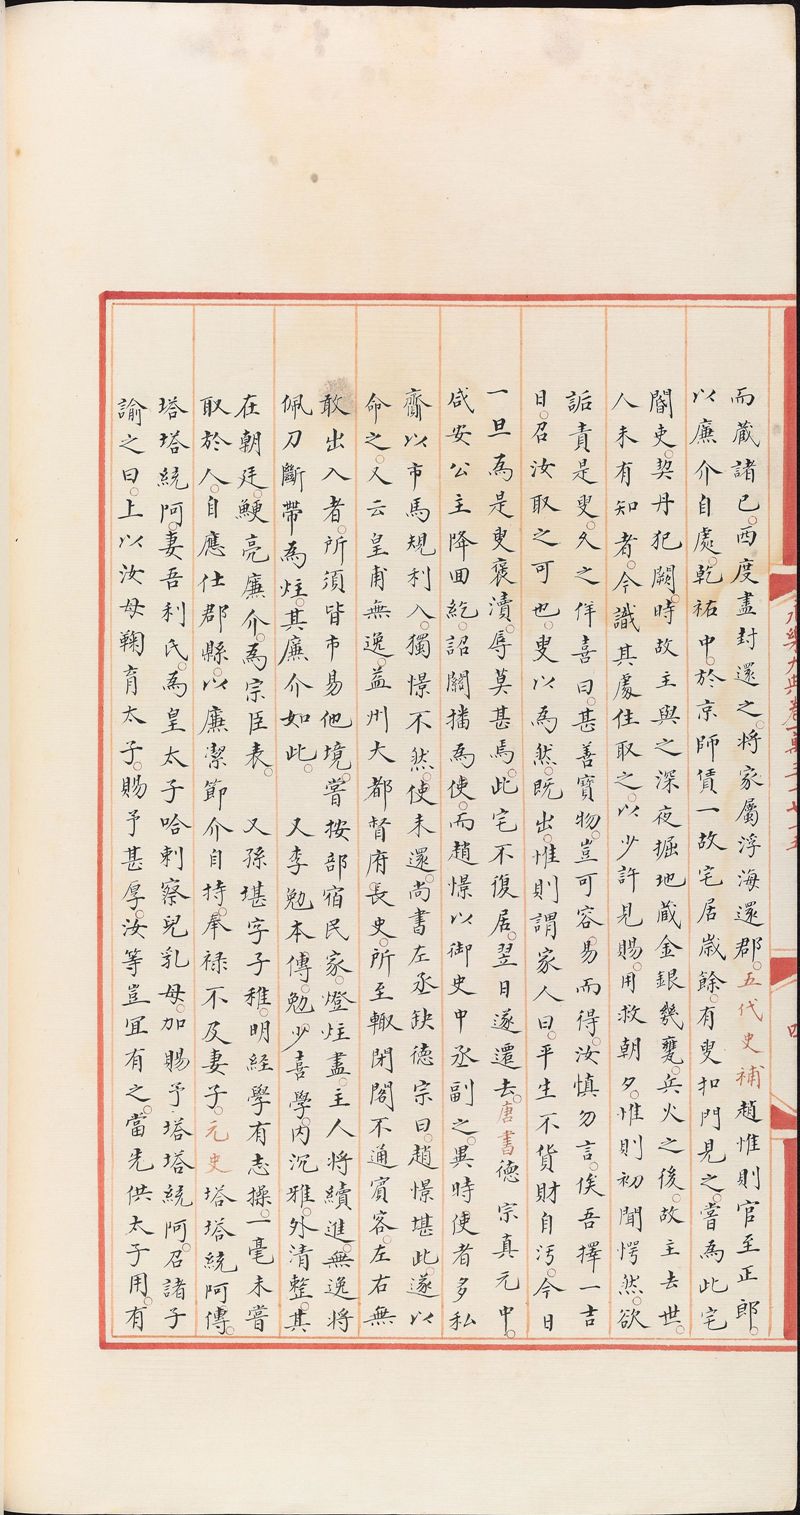 永樂大典卷一萬三千七十五
四
而藏諸已。西度盡封還之。將家屬浮海還郡。五代史補趙惟則官至正郎。
以廉介自處。乾祐中。於京師賃一故宅居歲餘。有叟扣門見之。嘗為此宅
閽吏。契丹犯闕。時故主與之深夜掘地藏金銀幾甕。兵火之後。故主去世。
人未有知者。今識其處住取之。以少許見賜。用救朝夕。惟則初聞愕然。欲
詬責是叟。久之佯喜曰。甚善寶物。豈可容易而得。汝慎勿言。俟吾擇一吉
日。召汝取之可也。叟以為然。既出。惟則謂家人曰。平生不貨財自汚。今日
一旦為是叟褻瀆。辱莫甚焉。此宅不復居。翌日遂遷去。唐書德宗真元中。
咸安公主降回紇。詔關播為使。而趙憬以御史中丞副之。異時使者多私
齎以市馬規利入。獨憬不然。使未還。尚書左丞缺德宗曰。趙憬堪此。遂以
命之。又云皇甫無逸。益州大都督府長史。所至輙閉閤不通賓客。左右無
敢出入者。所須皆市易他境。嘗按部宿民家。燈炷盡。主人將續進。無逸將
佩刀斷帶為炷。其廉介如此。 又李勉本傳。勉少喜學。内沉雅。外清整。其
在朝廷。鯁亮廉介。為宗臣表。 又孫堪字子稚。明經學有志操。一毫未嘗
取於人。自應仕郡縣。以廉潔節介自持。奉禄不及妻子。元史塔塔統阿傳。
塔塔統阿。妻吾利氏。為皇太子哈剌察兒乳母。加賜予塔塔統阿。召諸子
諭之曰。上以汝母鞠育太子。賜予甚厚。汝等豈宜有之。當先供太子用。有